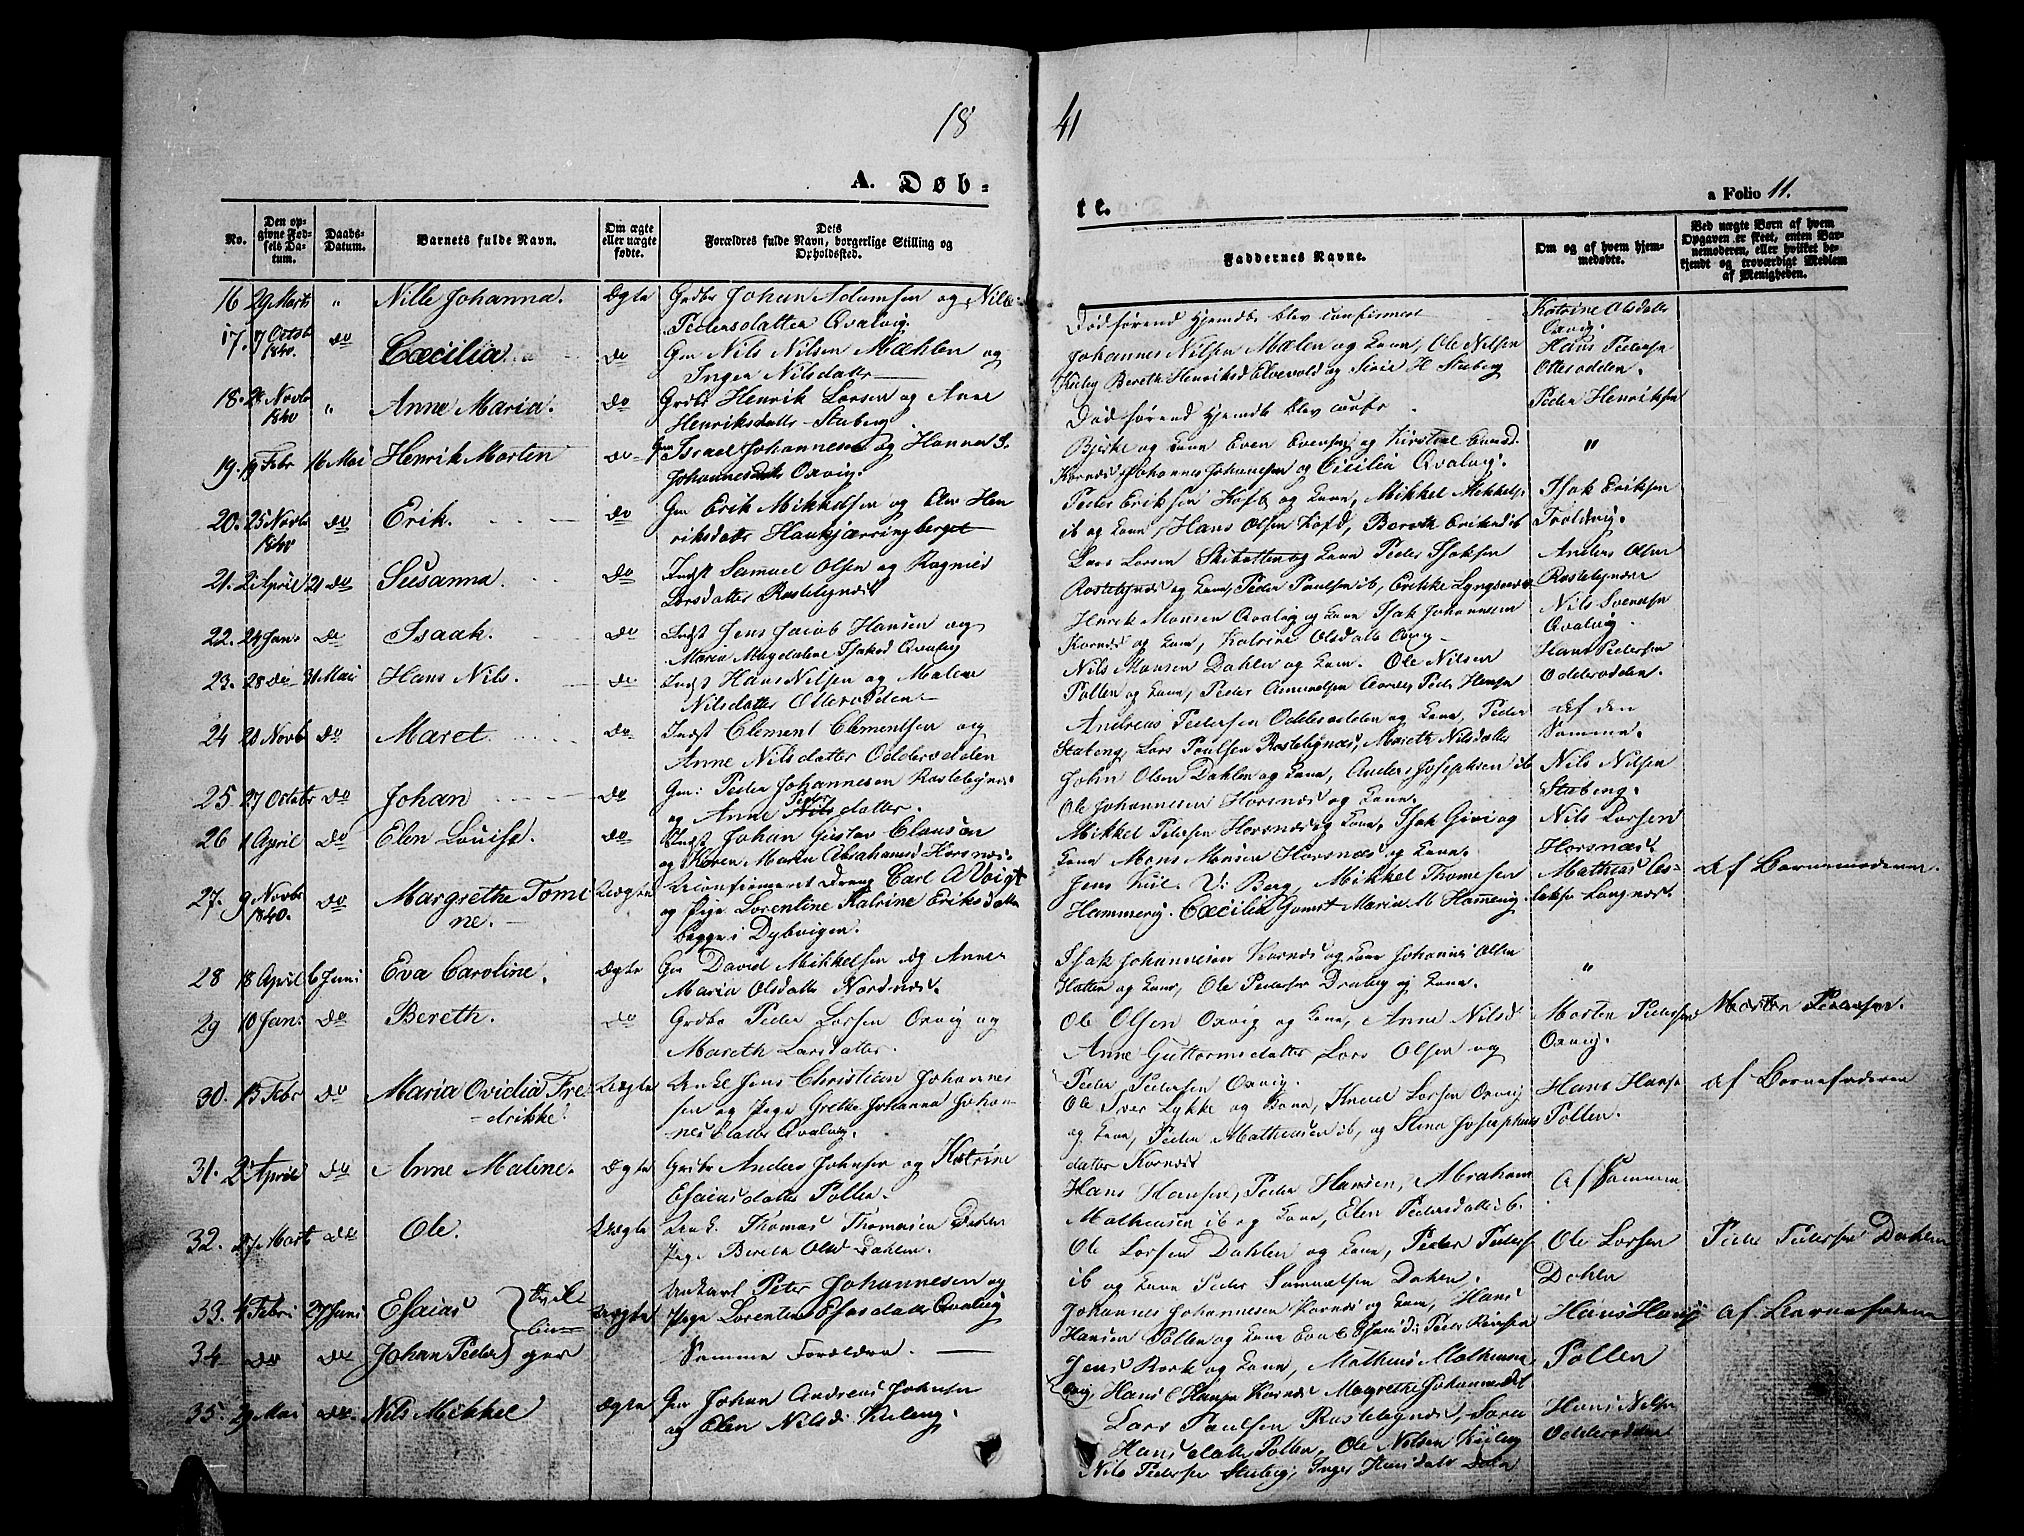 18 41
A. Døb-
te.
a Folio 11.
No.
Den op-
givne Fød-
sels Da-
tum.
Daabs-
Datum.
Barnets fulde Navn.
Om ægte
eller uægte
fødte.
Dets
Forældres fulde Navn, borgerlige Stilling og
Opholdssted.
Faddernes Navne.
Om og af hvem hjem-
medøbte.
Ved uægte Børn af hvem
Opgaven er skeet, enten Bar-
nemoderen, eller hvilket be-
kjendt og troværdigt Medlem
af Menigheden.
16 29 Marts " Nille Johanna. Ægte Grdbr Johan Adamsen og Nille
Pedersdatter Qvalvig.
Død førend Hjemdb blev confirmeret
Katrine Olsdatter
Oxvig.
17. 17 Octob
1840. do Cæcilia do Gm Nils Nilsen Mæhlen og
Inger Nilsdatter
Johannes Nilsen Mælen og Kone, Ole Nilsen
Kileng Bereth Henriksd Elvevold og Sirie H Stubeng
Hans Pedersen
Otterodden.
18. 28 Novb
1840 " Anne Maria. do Grdbr Henrik Larsen og Anne
Henriksdatter Stubeng.
Død førend Hjemdb blev confr.
Peder Henriksen
19. 19 Febr 16 Mai Henrik Morten do Gm Israel Johannesen og Hanna S.
Johannesdatter Oxvig.
Bjerke og Kone Even Evensen og Kirstine
Kornæs Johannes Johannesen og Cicilia Qvalvig.
"
20. 25 Novb
1840 do Erik. do Gm Erik Mikkelsen og Elen Hen
riksdatter Haukjærringberget
Peder Eriksen Koft og Kone, Mikkel Mikkelsen
ib og Kone, Hans Olsen Kofd, Bereth Eriksd ib
Isak Eriksen
Troldvig.
21. 2 April 21 do Susanna. do Indst Samuel Olsen og Ragnild
Larsdatter Rastebynæs
Lars Larsen Skibotten og Kone Peder Isaksen
Rastebynæs og Kone, Peder Paulsen ib, Erikke Lyngsnæs
Anders Olsen
Rastebynæs
22. 24 Jan. do Isaak. do Indst Jens Jacob Hansen og
Maria Magdalene Isaksd Qvalvig
Henrik Monsen Qvalvig og Kone Isak Johannesen
Kornæs og Kone, Katrine Olsdatter Oxvig
Nils Svendsen
Qvalvig.
23. 28 do 31 Mai Hans Nils. do Indst Hans Nilsen og Malene
Nilsdatter Otterodden
Nils Monsen Dahlen og Kone. Ole Nilsen
Pollen og Kone, Peder Amundsen Aarnes Peder Hansen
Hans Pedersen
Odderodden.
24 28 Novb do Maret do Indst Clement Clementsen og
Anne Nilsdatter Odderodden
Andreas Pedersen Odderodden og Kone, Peder
Stubeng, Lars Paulsen Rastebynæs, Mareth Nilsdatter
af den
Samme.
25 27 Octobr do Johan do Gm: Peder Johannesen Rastebynæs
og Anne Peders Nilsdatter.
John Olsen Dahlen og Kone, Anders Josephsen ib
Ole Johannesen Horsnæs og Kone.
Nils Nilsen
Stubeng.
26 1 April do Elen Louise. do Indst Johan Gustav Clausen
og Karen Maria Abrahamsd Horsnæs.
Mikkel Pedersen Horsnæs og Kone, Isak Givi og
Kone Mons Monsen Horsnæs og Kone.
Nils Larsen
Horsnæs
27. 9 Novbr
1840. do Margrethe Tomi
ne. Uægte Uconfirmeret Dreng Carl A Voigt
og Pige Lorentine Katrine Eriksdatter
begge i Dybvigen.
Jens Kiil. V: Berg, Mikkel Thomesen
Hammervig. Cæcilia Gamst Maria M Hammervig.
Mathias As-
laksen Langnæs.
af Barnemoderen.
28 18 April 6 Juni Eva Caroline. Ægte Gm David Mikkelsen og Anne
Maria Olsdatter Nordnæs.
Isak Johannesen Kornæs og Kone Johannes Olsen
Hatten og Kone, Ole Pedersen Draberg og Kone.
"
29 10 Jan. do Bereth. do Grdbr Peder Larsen Oxvig og
Mareth Larsdatter.
Ole Olsen Oxvig og Kone, Anne Nilsd
Anne Guttormsdatter, Lars Olsen og
Peder Pedersen Oxvig.
Morten Pedersen
Oxvig.
Morten Pedersen.
30. 13 Febr do Maria Ovidia Fre
drikke Uægte Enke Jens Christian Johannes
sen og Pige Grethe Johanna Johan-
nesdatter Qvalvig.
Ole Iver Lykke og Kone, Knud Larsen Oxvig
og Kone, Peder Matheusen ib, og Stina Josephus
datter Kornæs
Hans Hansen
Pollen.
af Barnefaderen
31. 2 April do Anne Malene. Ægte Grdbr Anders Johnsen og Katrine
Esaiasdatter Pollen.
Hans Hansen, Peder Hansen, Abraham
Matheusen ib og Kone, Elen Pedersdatter ib.
Af Samme
32. 27 Marts do Ole. Uægte Enk. Thomas Thomasen Dahlen
Pige Berith Olsd Dahlen.
Ole Larsen Dahlen og Kone, Peder Peders
ib og Kone Peder Samuelsen Dahlen.
Ole Larsen
Dahlen
Peder Pedersen Dahlen
33. 4 Febr 27 Juni Esaias Tvil-
lin-
ger Uægte Ungkarl Peter Johannesen og
Pige Lorentine Esaiasdatter Qvalvig
Johannes Johannesen Kornæs og Kone, Hans
Hansen Pollen og Kone
Hans Hansen
Pollen
af Barnefaderen
34 do do Johan Peder Samme Forældre.
Jens Bork og Kone, Mathias Mathiesen
Oxvig, Hans C Hansen Kornæs Magrethe Johannesdat
35. 29 Mai do Nils Mikkel Ægte Gm Johan Andreas Johnsen
og Elen Nilsd. Kileng.
Lars Paulsen Rastebynæs, Sara
Hansdatter Pollen, Ole Nilsen Kileng
Nils Pedersen Stubeng, Inger Hansdatter Dalen
Hans Nilsen
Odderodden